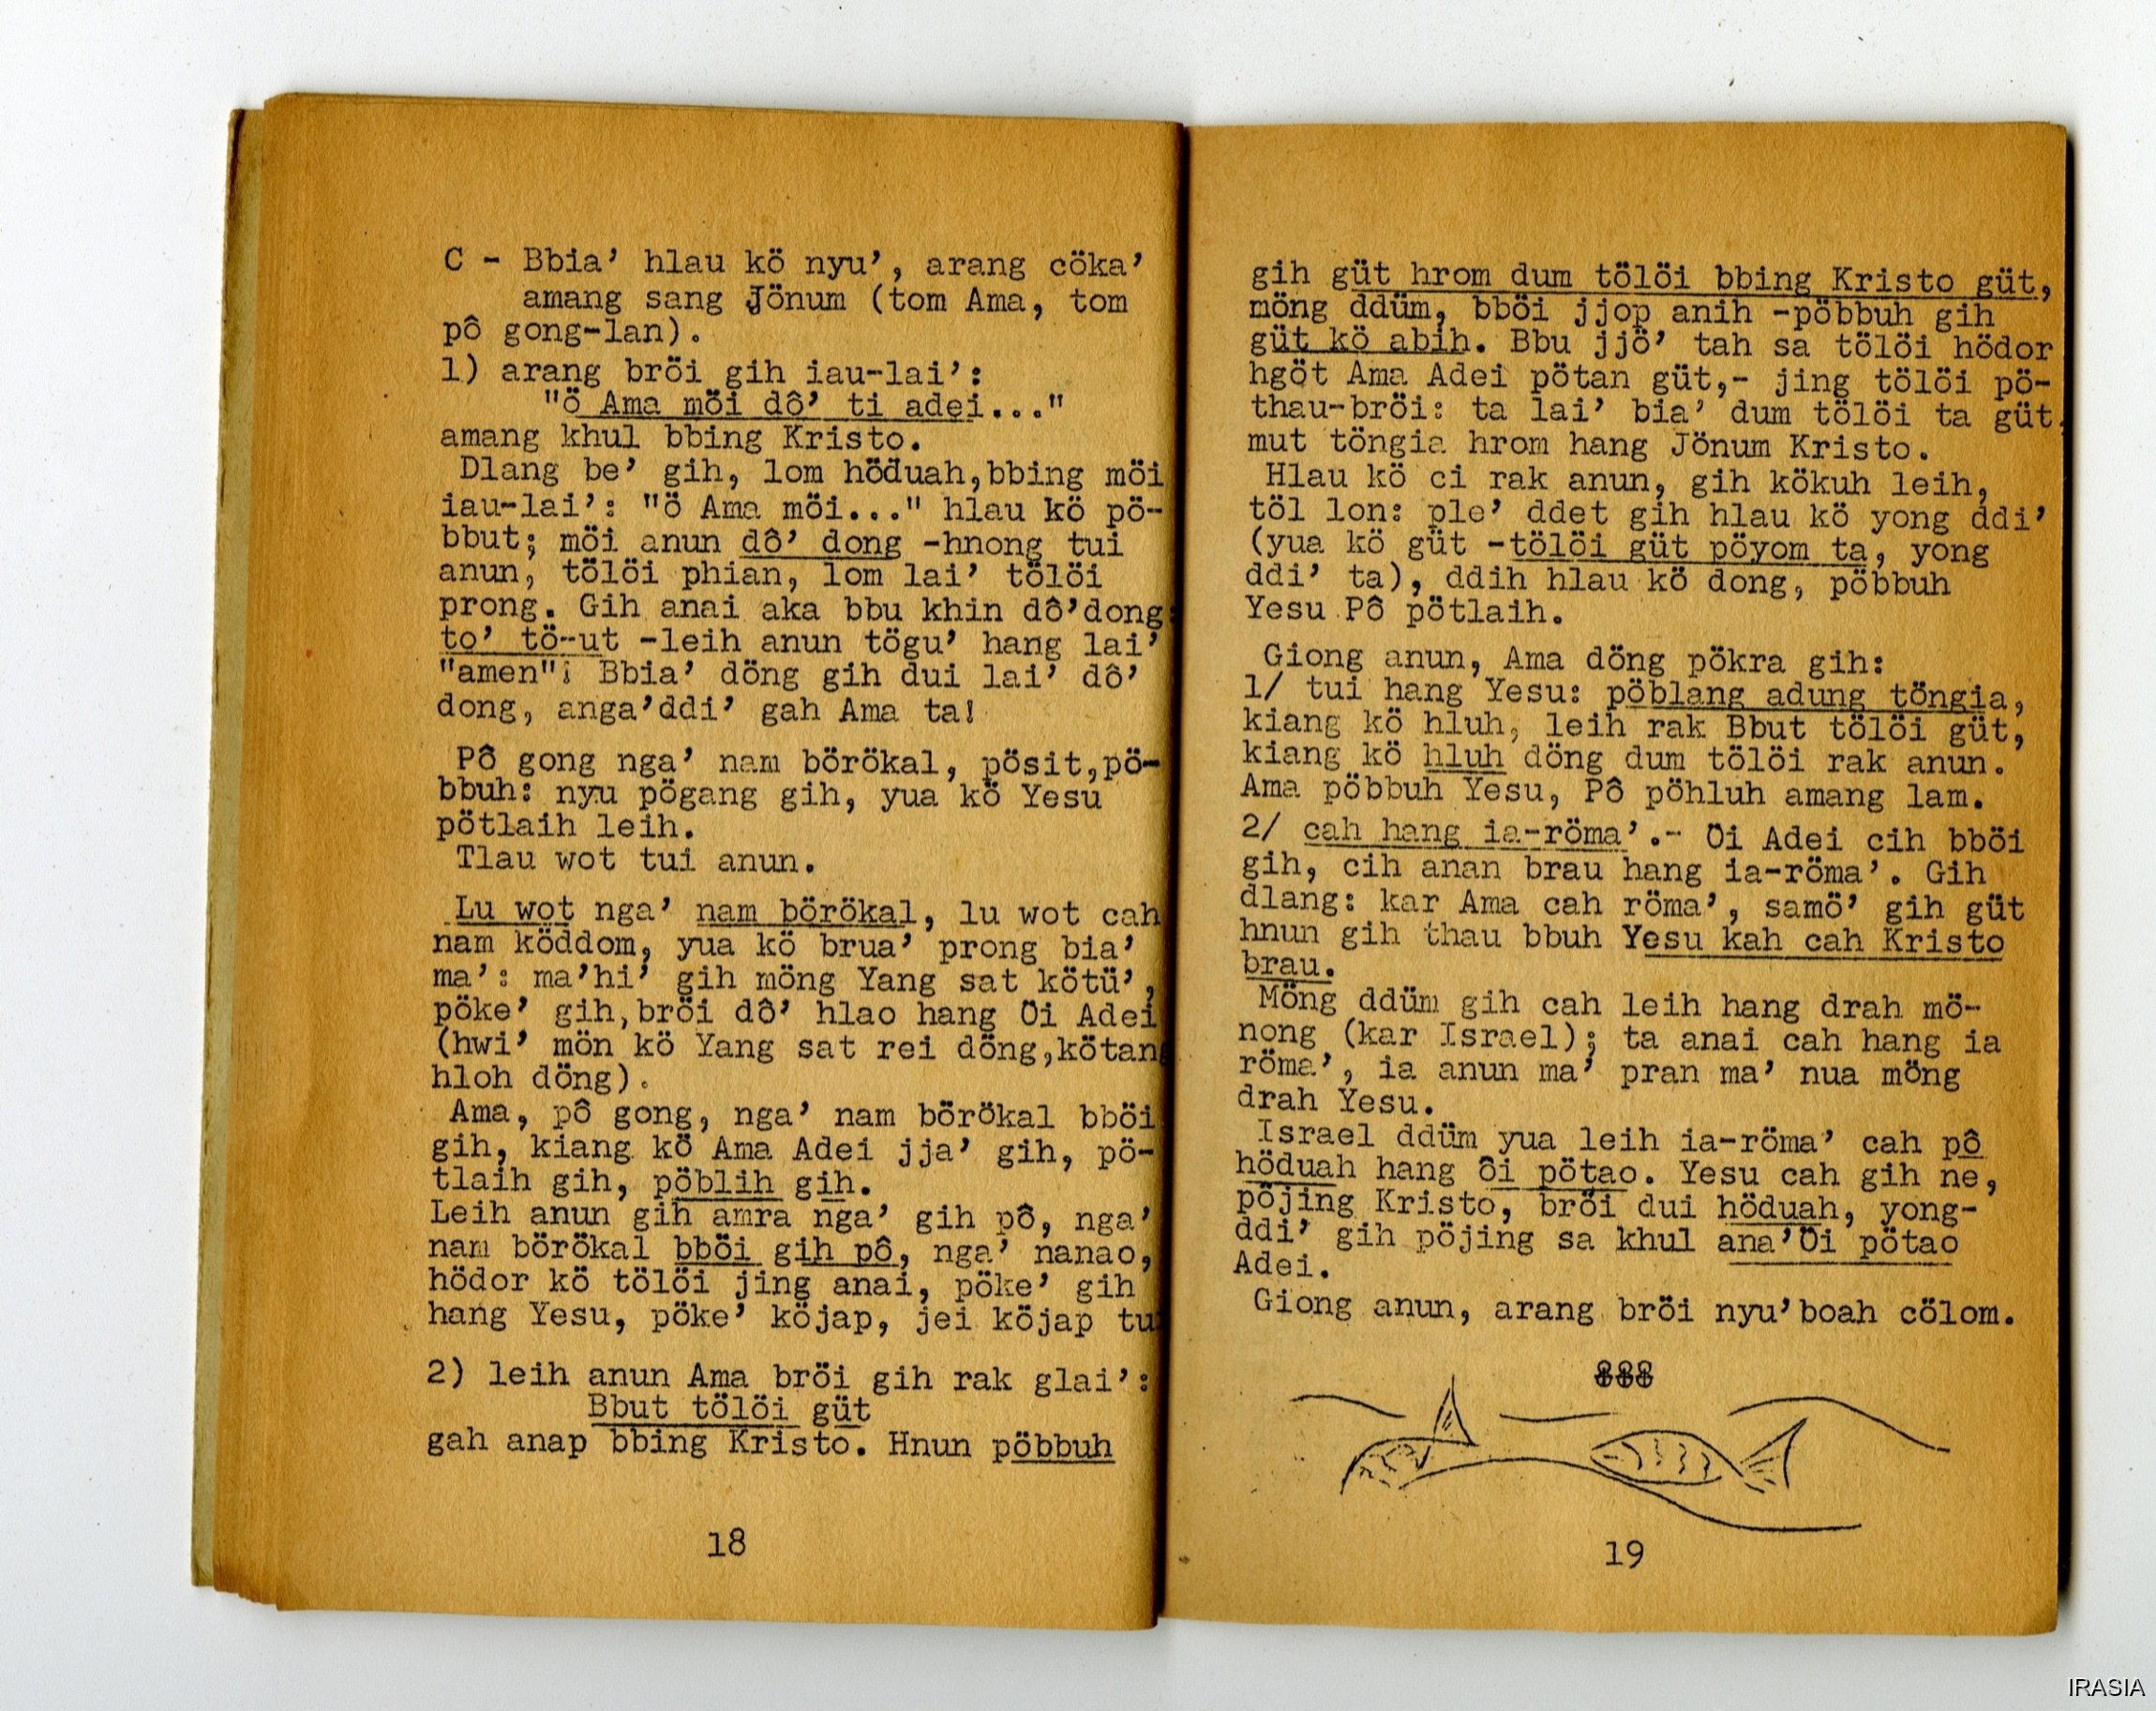 C - Bbia’ hlau kö nyu’, arang cöka’
amang sang Jönum (tom Ama, tom
pô gong-lan).
1) arang bröi gih iau-lai’:
"ö Ama möi dô’ ti adei..."
amang khul bbing Kristo.
Dlang be’ gih, lom höduah,bbing möi
iau-lai’: "ö Ama möi..." hlau kö pö-
bbut; möi anun dô’ dong -hnong tui
anun, tölöi phian, lom lai’ tölöi
prong. Gih anai aka bbu khin dô’dong:
to’ tö-ut -leih anun tögu’ hang lai’
"amen"! Bbia’ döng gih dui lai’ dô’
dong, anga’ddi’ gah Ama ta!
Pô gong nga’ nam börökal, pösit,pö-
bbuh: nyu pögang gih, yua kö Yesu
pötlaih leih.
Tlau wot tui anun.
Lu wot nga’ nam börökal, lu wot cah
nam köddom, yua kö brua’ prong bia’
ma’: ma’hi’ gih möng Yang sat kötü’,
pöke’ gih,bröi dô’ hlao hang Öi Adei
(hwi’ mön kö Yang sat rei döng,kötang
hloh döng).
Ama, pô gong, nga’ nam börökal bböi
gih, kiang kö Ama Adei jja’ gih, pö-
tlaih gih, pöblih gih.
Leih anun gih amra nga’ gih pô, nga’
nam börökal bböi gih pô, nga’ nanao,
hödor kö tölöi jing anai, pöke’ gih
hang Yesu, pöke’ köjap, jei köjap
2) leih anun Ama bröi gih rak glai’:
Bbut tölöi güt
gah anap bbing Kristo. Hnun pöbbuh
18
gih güt hrom dum tölöi bbing Kristo güt,
möng ddüm, bböi jjop anih -pöbbuh gih
güt kö abih. Bbu jjö’ tah sa tölöi hödor
hgöt Ama Adei pötan güt,- jing tölöi pö-
thau-bröi: ta lai’ bia’ dum tölöi ta güt
mut töngia hrom hang Jönum Kristo.
Hlau kö ci rak anun, gih kökuh leih,
töl lon: ple’ ddet gih hlau kö yong ddi’
(yua kö güt -tölöi güt pöyom ta, yong
ddi’ ta), ddih hlau kö dong, pöbbuh
Yesu Pô pötlaih.
Giong anun, Ama döng pökra gih:
1/ tui hang Yesu: pöblang adung töngia,
kiang kö hluh, leih rak Bbut tölöi güt,
kiang kö hluh döng dum tölöi rak anun.
Ama pöbbuh Yesu, Pô pöhluh amang lam.
2/ cah hang ia-röma’.- Öi Adei cih bböi
gih, cih anan brau hang ia-röma’. Gih
dlang: kar Ama cah röma’, samö’ gih güt
hnun gih thau bbuh Yesu kah cah Kristo
brau.
Möng ddüm gih cah leih hang drah mö-
nong (kar Israel); ta anai cah hang ia
röma’, ia anun ma’ pran ma’ nua möng
drah Yesu.
Israel ddüm yua leih ia-röma’ cah pô
höduah hang ôi pötao. Yesu cah gih ne,
pöjing Kristo, bröi dui höduah, yong-
ddi’ gih pöjing sa khul ana’Öi pötao
Adei.
Giong anun, arang bröi nyu’boah cölom.
19
IRASIA